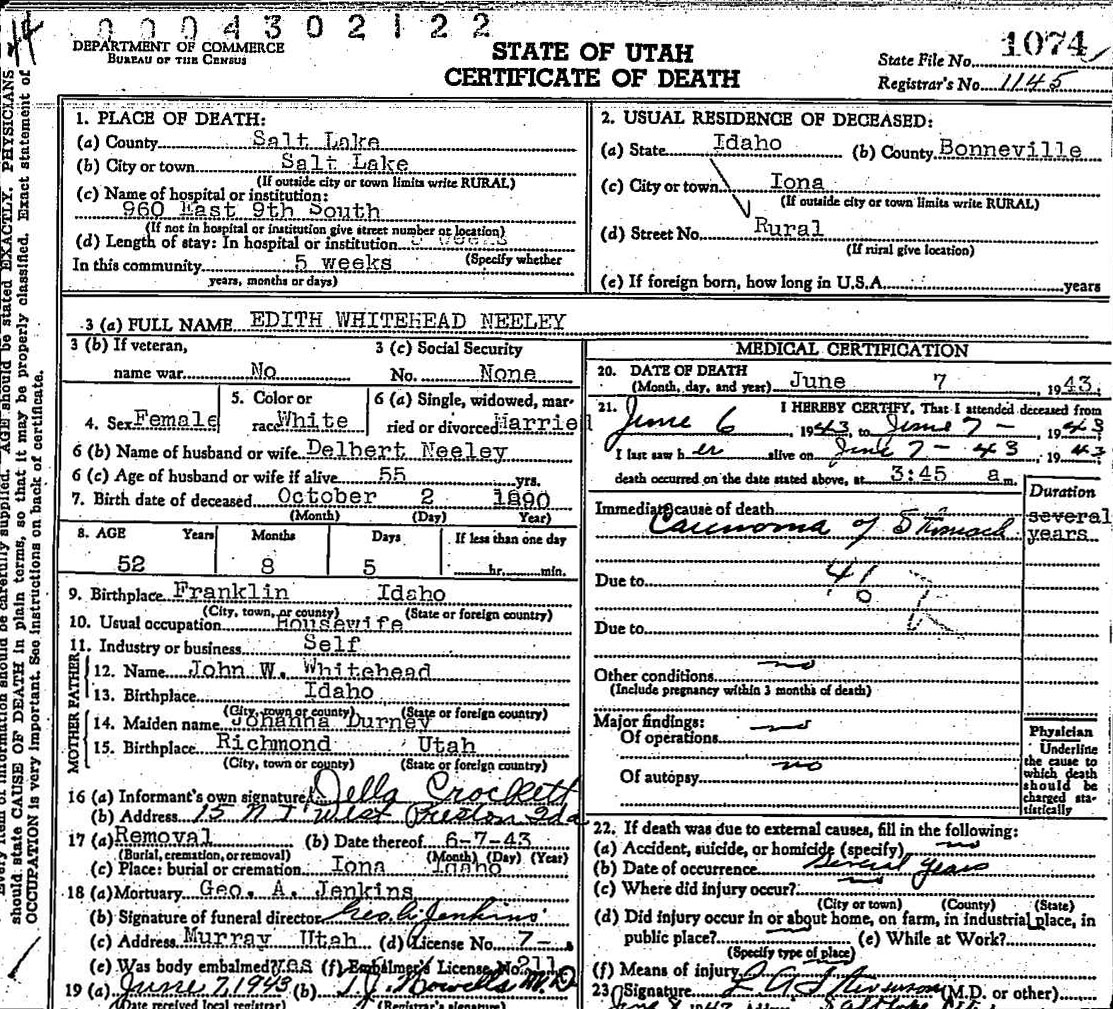 0004302122
DEPARTMENT OF COMMERCE
BUREAU OF THE CENSUS
STATE OF UTAH
CERTIFICATE OF DEATH
State File No. 1074
Registrar's No. 1145
1. PLACE OF DEATH:
(a) County Salt Lake
(b) City or town Salt Lake
(If outside city or town limits write RURAL)
(c) Name of hospital or institution:
960 East 9th South
(If not in hospital or institution give street number or location)
(d) Length of stay: In hospital or institution weeks
(Specify whether
In this community 5 weeks
years, months or days)
2. USUAL RESIDENCE OF DECEASED:
(a) State Idaho (b) County Bonneville
(c) City or town Iona
(If outside city or town limits write RURAL)
(d) Street No. Rural
(If rural give location)
(e) If foreign born, how long in U.S.A. years
3 (a) FULL NAME EDITH WHITEHEAD NEELEY
3 (b) If veteran,
name war No
3 (c) Social Security
No. None
4. Sex Female
5. Color or
race White
6 (a) Single, widowed, mar-
ried or divorced Married
6 (b) Name of husband or wife Delbert Neeley
6 (c) Age of husband or wife if alive 55 yrs.
7. Birth date of deceased October 2 1890
(Month) (Day) Year)
8. AGE Years Months Days If less than one day
52 8 5 hr. min.
9. Birthplace Franklin Idaho
(City, town, or county) (State or foreign country)
10. Usual occupation Housewife
11. Industry or business Self
FATHER
12. Name John W. Whitehead
13. Birthplace Idaho
(City, town or county) (State or foreign country)
MOTHER
14. Maiden name Johanna Durney
15. Birthplace Richmond Utah
(City, town or county) (State or foreign country)
16 (a) Informant's own signature Della Crockett
(b) Address 15 N 1 West Preston Ida
17 (a) Removal (b) Date thereof 6-7-43
(Burial, cremation, or removal) (Month) (Day) (Year)
(c) Place: burial or cremation Iona Idaho
18 (a) Mortuary Geo. A. Jenkins
(b) Signature of funeral director Geo A Jenkins
(c) Address Murray Utah (d) License No. 7-
(e) Was body embalmed yes (f) Embalmer's License No. 211
19 (a) June 7, 1943 (b) T.J. Howells M.D
(Date received local registrar) (Registrar's signature)
MEDICAL CERTIFICATION
20. DATE OF DEATH
(Month, day, and year) June 7, 1943.
21. I HEREBY CERTIFY, That I attended deceased from
June 6, 1943, to June 7 - 1943
I last saw her alive on June 7 - 43 1943
death occurred on the date stated above, at 3:45 a m.
Immediate cause of death
Carcinoma of Stomach
Duration
several
years
Due to
Due to
Other conditions no
(Include pregnancy within 3 months of death)
Major findings:
Of operations no
Of autopsy no
Physician
Underline
the cause to
which death
should be
charged sta-
tistically
22. If death was due to external causes, fill in the following:
(a) Accident, suicide, or homicide (specify) no
(b) Date of occurrence Several years
(c) Where did injury occur? no
(City or town) (County) (State)
(d) Did injury occur in or about home, on farm, in industrial place, in
public place? (e) While at Work?
(Specify type of place)
(f) Means of injury
23 Signature (M.D. or other)
Every item of information should be carefully supplied. AGE should be stated EXACTLY. PHYSICIANS
should state CAUSE OF DEATH in plain terms, so that it may be properly classified. Exact statement of
OCCUPATION is very important. See instructions on back of certificate.